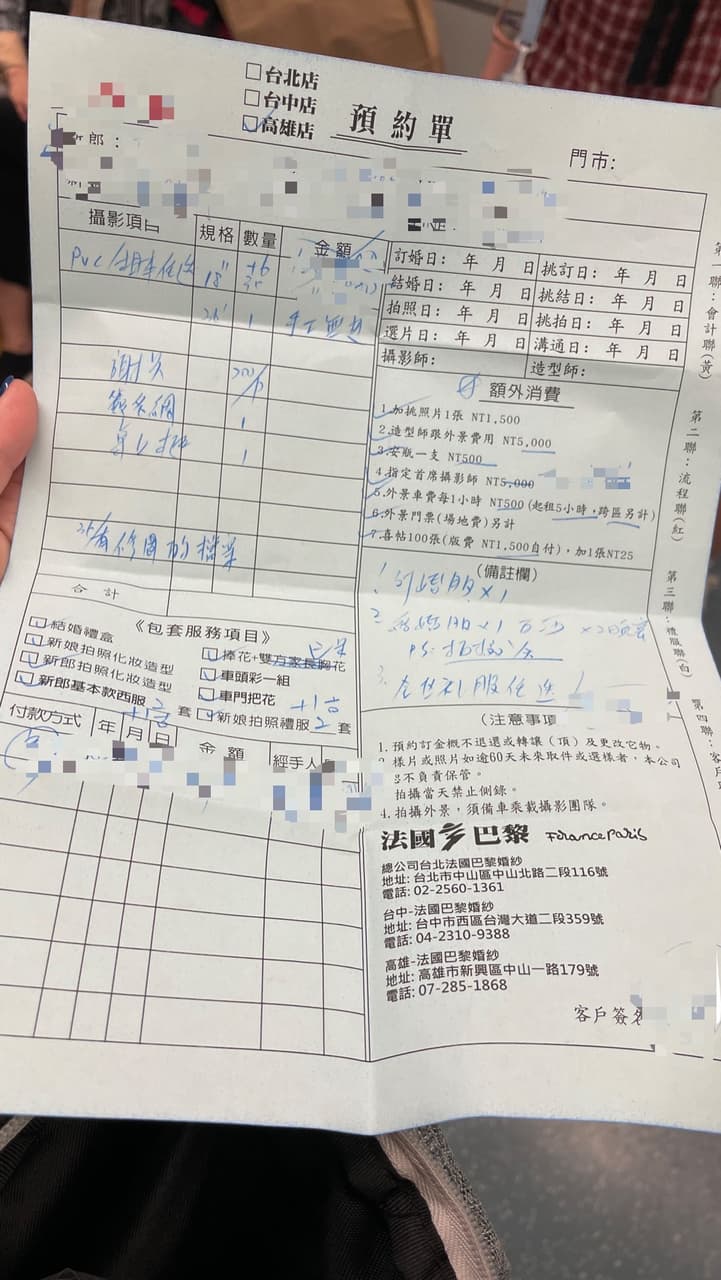 台北店
台中店
高雄店
預約單
門市:
郎:
攝影項目 規格 數量 金額
PVC 18"
1
謝卡
簽名綢 1
1
35 有修圖的檔案
合計
《包套服務項目》
結婚禮盒
新娘拍照化妝造型
新郎拍照化妝造型
新郎基本款西服 2 套
捧花+雙方家長胸花
車頭彩一組
車門把花
新娘拍照禮服 2 套
付款方式 年 月 日 金額 經手人
訂婚日: 年 月 日 挑訂日: 年 月 日
結婚日: 年 月 日 挑結日: 年 月 日
拍照日: 年 月 日 挑拍日: 年 月 日
選片日: 年 月 日 溝通日: 年 月 日
攝影師: 造型師:
額外消費
1.加挑照片1張 NT1,500
2.造型師跟外景費用 NT5,000
3.安瓶一支 NT500
4.指定首席攝影師 NT5,000
5.外景車費每1小時 NT500 (起租5小時,跨區另計)
6.外景門票(場地費)另計
7.喜帖100張(版費 NT1,500自付),加1張NT25
(備註欄)
1. 訂婚服x1
2. 結婚服x1
3. 禮服任選
(注意事項
1. 預約訂金概不退還或轉讓(頂)及更改它物。
樣片或照片如逾60天未來取件或選樣者,本公司
不負責保管。
拍攝當天禁止側錄。
4. 拍攝外景,須備車乘載攝影團隊。
法國巴黎 France Paris
總公司台北法國巴黎婚紗
地址: 台北市中山區中山北路二段116號
電話: 02-2560-1361
台中-法國巴黎婚紗
地址: 台中市西區台灣大道二段359號
電話: 04-2310-9388
高雄-法國巴黎婚紗
地址: 高雄市新興區中山一路179號
電話: 07-285-1868
客戶簽名
第一聯:會計聯(黃)
第二聯:流程聯(紅)
第三聯:禮服聯(白)
第四聯:客戶